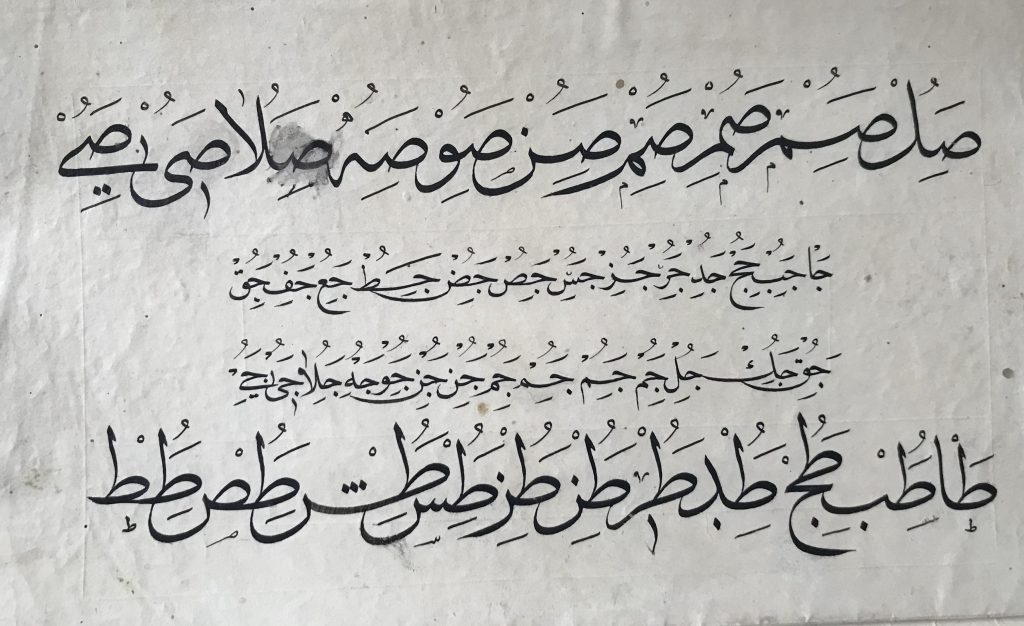 صَُِلْ صَُِمْ صَُِمْ صَُِمْ صَُِنْ صَُِوْ صَُِهْ صَُِلَا صَُِىْ صَُِےْ
جَا جَُِبْ جَُِجْ جَُِدْ جَُِرْ جَُِرْ جَُِسْ جَُِصْ جَُِصْ جَُِطْ جَُِعْ جَُِفْ جَُِقْ
جَُِقْ جَُِكْ جَُِلْ جَُِمْ جَُِمْ جَُِمْ جَُِمْ جَُِنْ جَُِنْ جَُِوْ جَُِهْ جَُِلَا جَُِىْ جَُِےْ
طَا طَُِبْ طَُِجْ طَُِدْ طَُِرْ طَُِرْ طَُِرْ طَُِسْ طَُِشْ طَُِصْ طَُِطْ